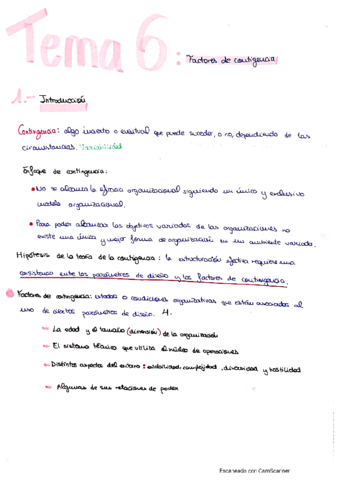 Tema 6: Factores de contigencia
1.- Introducción
Contingencia: algo incierto o eventual que puede suceder, o no, dependiendo de las
circunstancias. Variabilidad
Enfoque de contingencia:
• No se alcanza la eficacia organizacional siguiendo un único y exclusivo
modelo organizacional.
• Para poder alcanzar los objetivos variados de las organizaciones no
existe una única y mejor forma de organización en un ambiente variado.
Hipótesis de la teoría de la contigencia: la estructuración efectiva requiere una
consistencia entre los parámetros de diseño y los factores de contingencia.
Factores de contingencia: estados o condiciones organizativas que están asociados al
uso de ciertos parámetros de diseño. 4.
La edad y el tamaño (dimensión) de la organización
El sistema técnico que utiliza el núcleo de operaciones
Distintos aspectos del entorno: estabilidad, complejidad, diversidad y hostilidad
Algunas de sus relaciones de poder
Escaneado con CamScanner